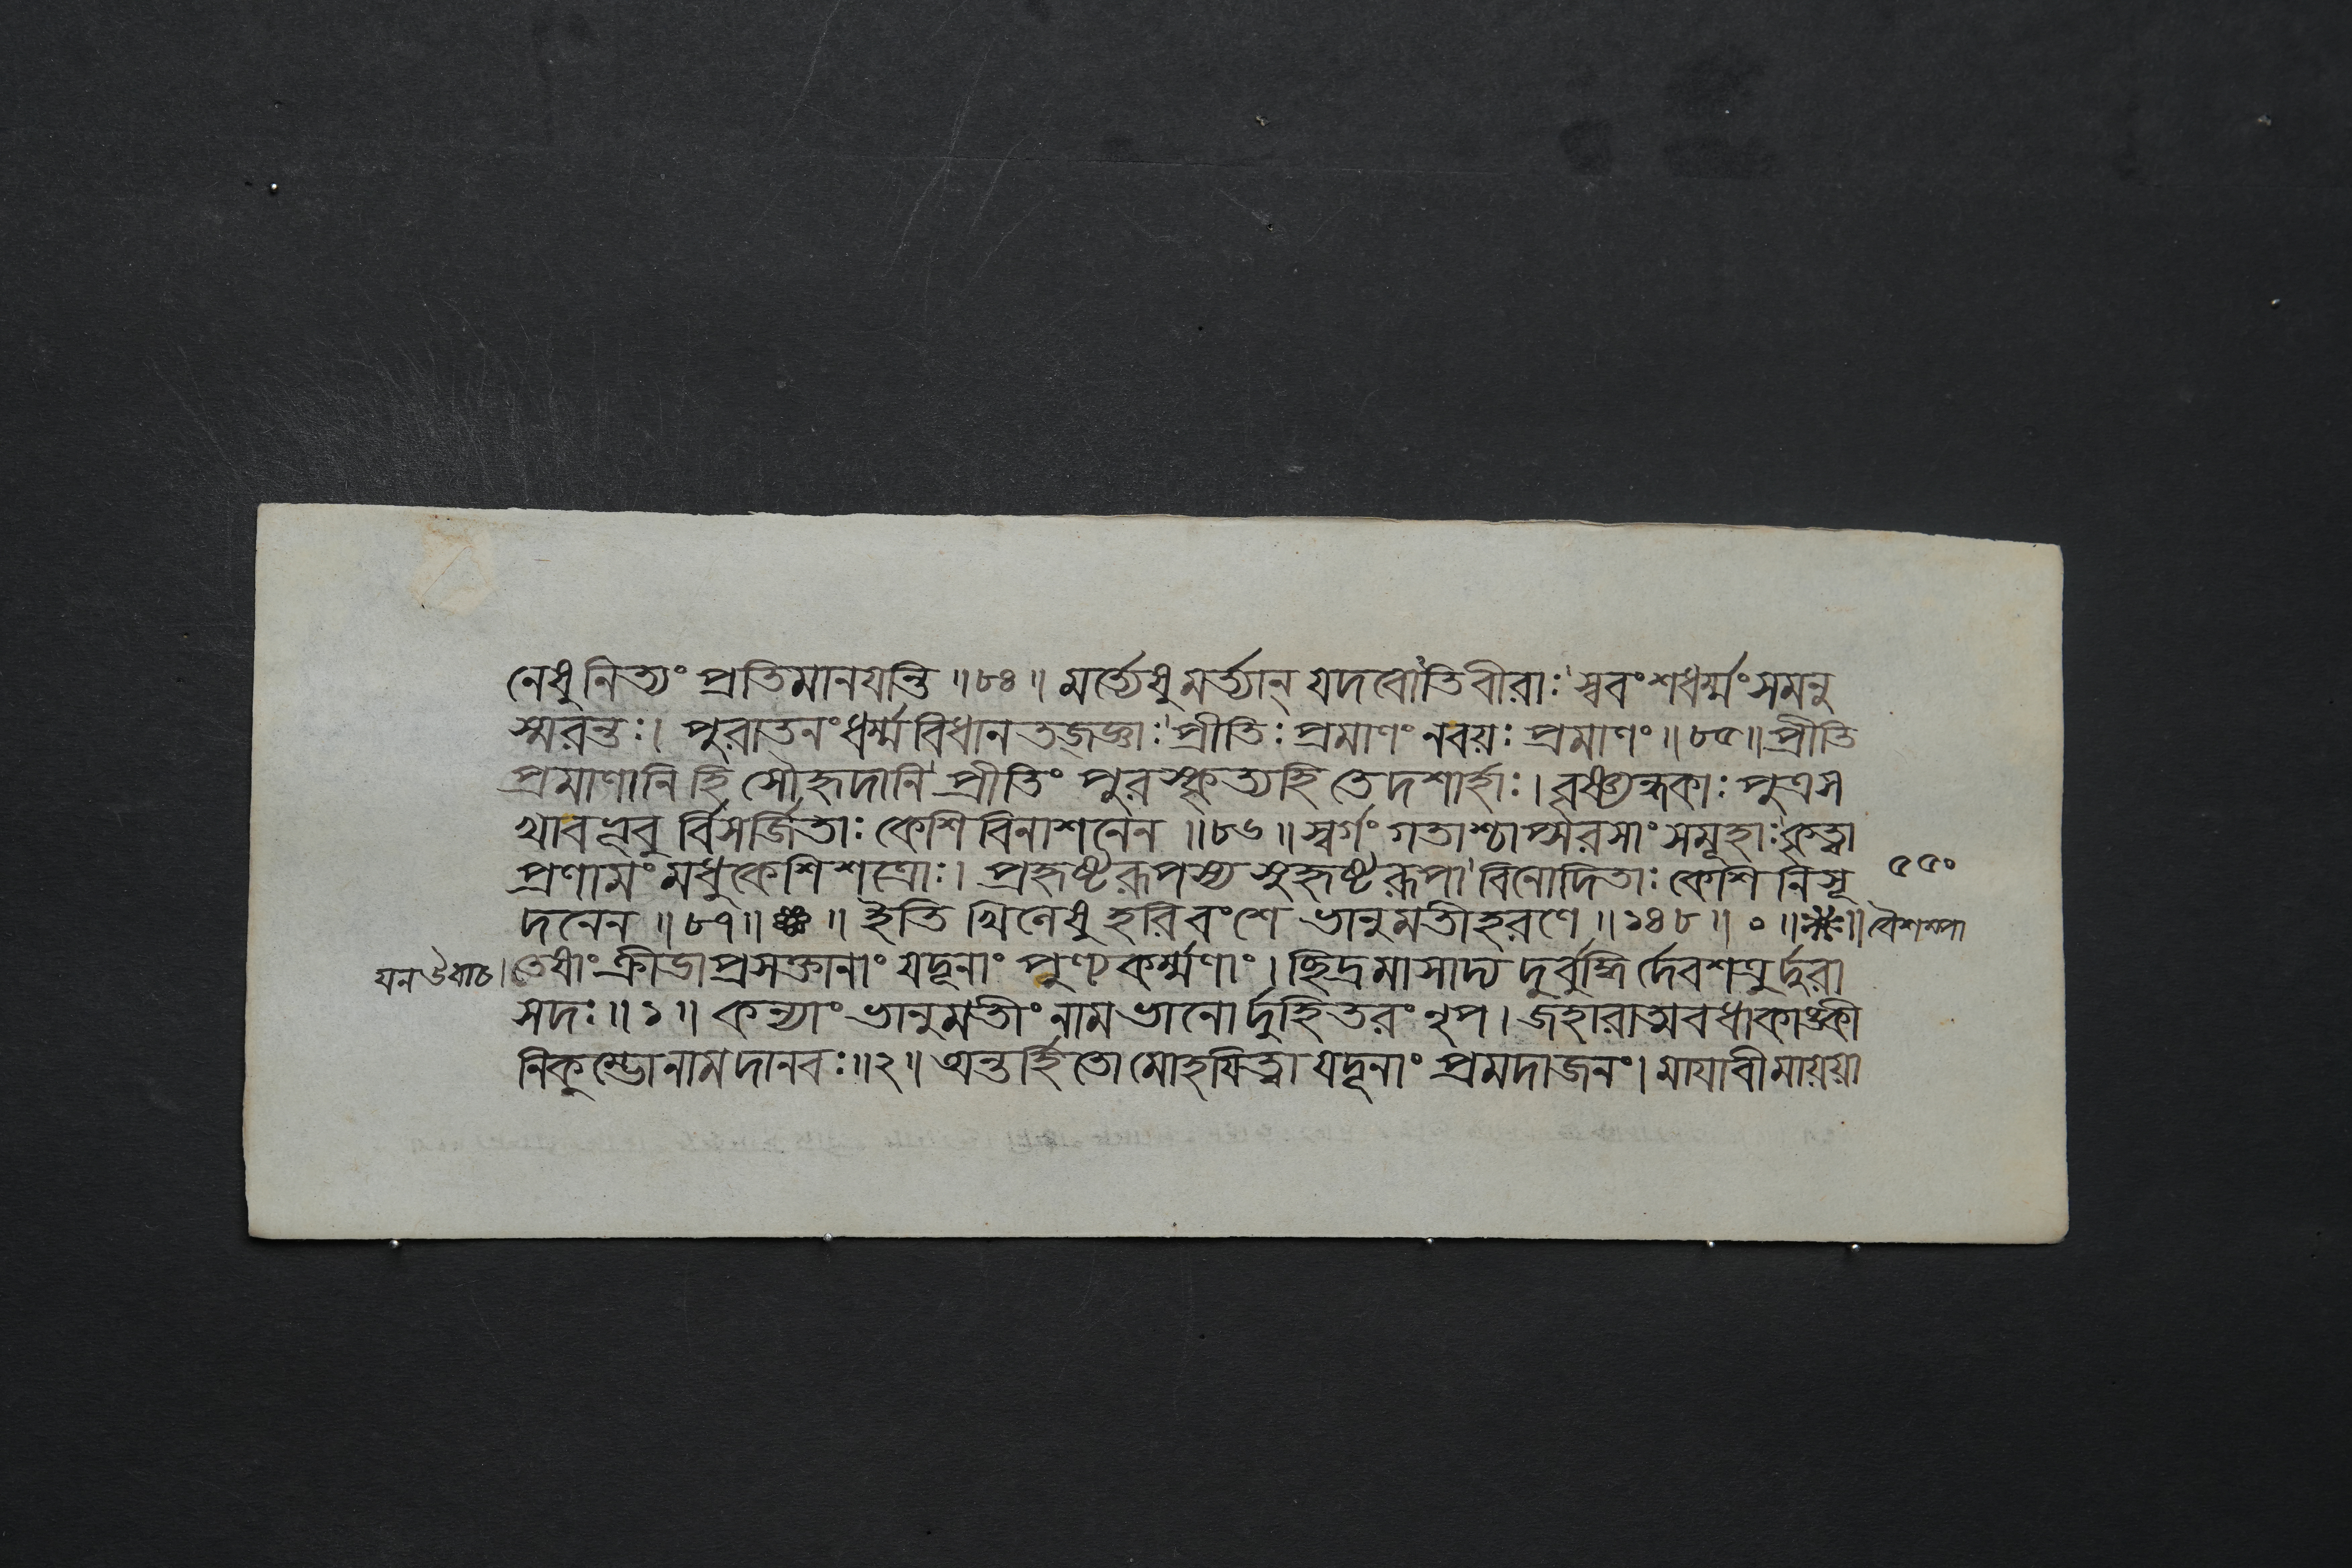 নেষু নিত্যং প্রতিমানযন্তি ॥৮৪॥ মর্ত্যেষু মর্ত্যান্ যদবোঽতিবীরাঃ স্ববংশধর্ম্মং সমনু
স্মরন্তঃ। পুরাতনং ধর্ম্মবিধানতজ্জ্ঞাঃ প্রীতিঃ প্রমাণং নবয়ঃ প্রমাণং ॥৮৫॥ প্রীতি
প্রমাণানি হি সৌহৃদানি প্রীতিং পুরস্কৃত্যহি তে দশার্হাঃ। বৃষ্ণ্যন্ধকাঃ পুত্রস
খাবভূবু র্বিসর্জিতাঃ কেশিবিনাশনেন ॥৮৬॥ স্বর্গং গতাশ্চাপ্সরসাং সমূহাঃ কৃত্বা
প্রণামং মধুকেশিশত্রোঃ। প্রহৃষ্টরূপস্য সুহৃষ্টরূপা বিনোদিতাঃ কেশিনিসূ
৫৫০
দনেন ॥৮৭॥ ॥ ইতি খিলেষু হরিবংশে ভানুমতীহরণে ॥১৪৮॥ ০ ॥ ॥ বৈশম্পা
যন উবাচ। তেষাং ক্রীডাপ্রসক্তানাং যদূনাং পুণ্যকর্ম্মণাং। ছিদ্রমাসাদ্য দুর্বুদ্ধি র্দেবশত্রুর্দুরা
সদঃ ॥১॥ কন্যাং ভানুমতীং নাম ভানোর্দুহিতরং নৃপ। জহারাত্মবধাকাঙ্ক্ষী
নিকুম্ভোনামদানবঃ ॥২॥ অন্তর্হিতো মোহযিত্বা যদূনাং প্রমদাজনং। মাযাবী মায়য়া